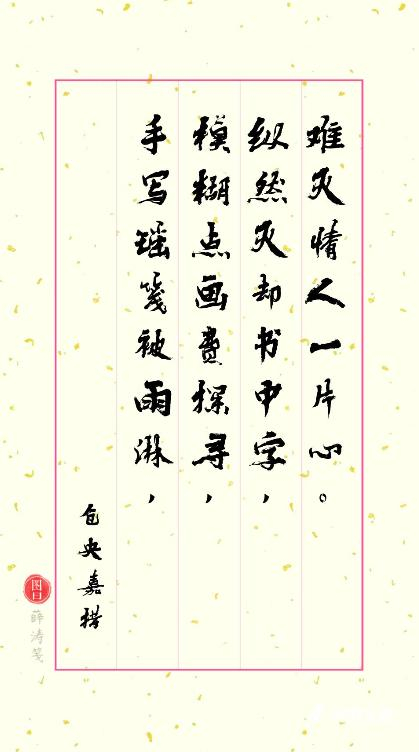 手写瑶笺被雨淋，
模糊点画费探寻，
纵然灭却书中字，
难灭情人一片心。
仓央嘉措
图曰
薛涛笺